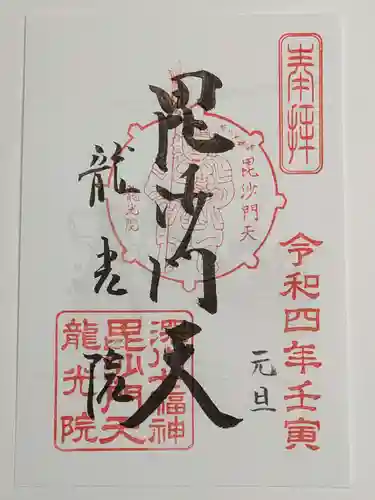 奉拝
令和四年壬寅
元旦
毘沙門天
毘沙門天
龍光院
龍光院
深川七福神
毘沙門天
龍光院